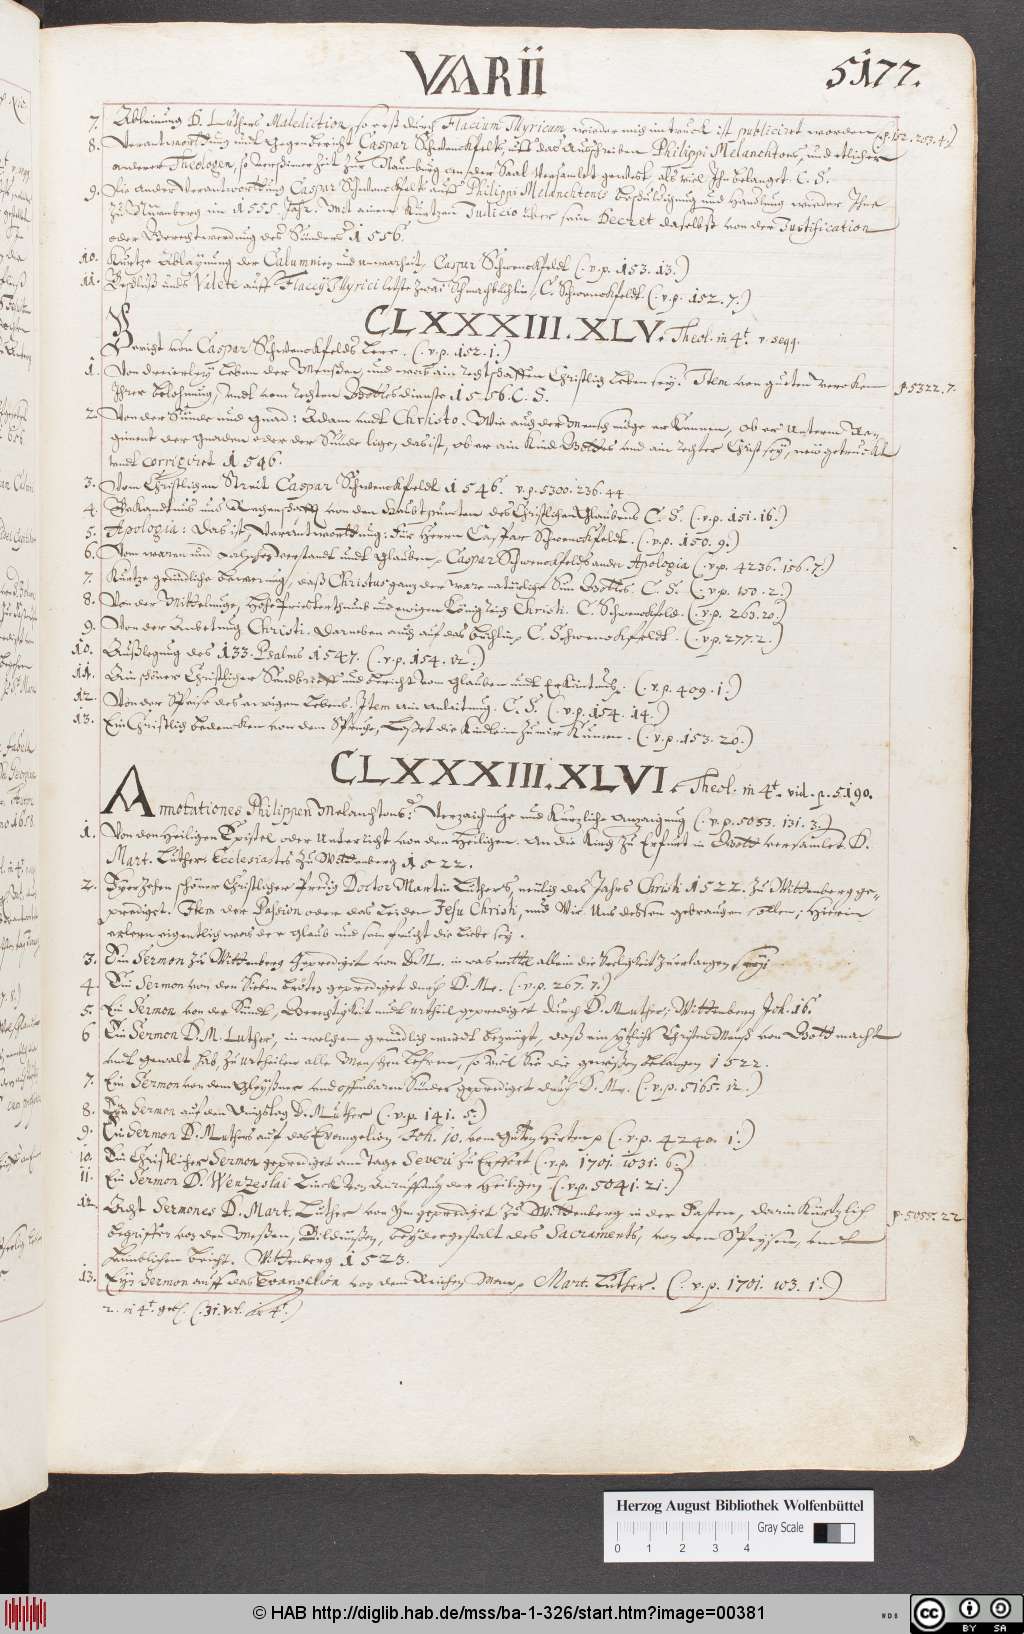 VARII
5177.
7. Ableinung D. Luthers Malediction, so erst durch Flacium Illyricum wieder mich im truck ist publiciret worden (.v.p. 152. 203. 4.)
8. Verantwortung undt Gegenbericht Caspar Schwenckfelts, uff das Ausschreiben Philippi Melanchtons, und etlicher
anderer Theologen, so verschiner Zeit zur Naumburg an der Saal versamlet gewest als viel Ihn belanget. C. S.
9. Die ander Verantwortung Caspar Schwenckfelt auff Philippi Melanchtonis beschuldigung und handlung wieder Ihne
zu Nürnberg im 1555. Jahr. Mit einem Kurtzen Judicio über sein Decret daselbst von der Justification
oder Gerechtwerdung des Sünders 1556.
10. Kurtze Ableynung der Calumnien und unwarheit, Caspar Schwenckfeldt (.v.p. 153. 13.)
11. Beschluß unds Valete auff Flaccii Illyrici letste zwai Schmachbüchlin, C. Schwenckfeldt. (.v.p. 152. 7.)
CLXXXIII. XLV. Theol. in 4t. v. seqq.
Bericht von Caspar Schwenckfelds Leer. (.v.p. 152. 1.)
1. Von dreierley Leben der Menschen, und was ain rechtschaffen Christlich Leben sey. Item von guten wercken
Ihrer belohnung, undt vom rechten Gottesdienste 1556. C. S.
p. 5322. 7.
2. Von der Sünde und gnad: Adam undt Christo. Wie auch der Mensch möge erkennen, ob er unterm Re-
giment der Gnaden oder der Sünde lige, das ist, ob er ain Kind Gottes und ain rechter Christ sey, new getruckt
undt corrigiret 1546.
3. Vom Christlichen Streit Caspar Schwenckfeldt 1546. v.p. 5300. 236. 44.
4. Bekandtnus und Rechenschafft von den Haubtpuncten des Christlichen Glaubens C. S. (.v.p. 151. 16.)
5. Apologia: Das ist, Verantwortung: Für Herren Caspar Schwenckfeldt. (.v.p. 150. 9.)
6. Vom waren und falschen verstandt undt Glauben, Caspar Schwenckfelds ander Apologia (.v.p. 4236. 156. 7.)
7. Kurtze gründliche bewerung, daß Christus gantz der ware natürliche Sun Gottes. C. S. (.v.p. 150. 2.)
8. Von der Mittelunge, Hohepriesterthumb und ewigem Königreich Christi. C. Schwenckfeld. (.v.p. 263. 20.)
9. Von der Anbetung Christi. Darneben auch auf das Büchlin, C. Schwenckfeldt. (.v.p. 277. 2.)
10. Außlegung des 133. Psalms 1547. (.v.p. 154. 12.)
11. Ain schöner Christlicher Sendbrieff und bericht vom Glauben undt Erkäntnuß. (.v.p. 409. 1.)
12. Von der Speise des ewigen Lebens. Item ain anleitung. C. S. (.v.p. 154. 14.)
13. Ein Christlich bedencken von dem Spruche, Lasset die Kindlein zu mir Kumen. (.v.p. 153. 20.)
CLXXXIII. XLVI. Theol. in 4t. vid. p. 5190.
Annotationes Philippen Melanchtons: Verzaichnuge und Kürzliche anzaigung (.v.p. 5053. 131. 3.)
1. Von den Heiligen Epistel oder Unterricht von den Heiligen. An die Kirch zu Erfurt in Gott versamlet. D.
Mart. Luther Ecclesiastes zu Wittenberg 1522.
2. Dreyzehen schöner Christlicher Predig Doctor Martin Luthers, neulich des Jahrs Christi 1522. zu Wittenberg ge-
prediget. Item der Passion oder das Leiden Jesu Christi, und Wie Uns dessen gebrauchen sollen; Hierin
erlern eigentlich was der Glaub und sein frucht die Liebe sey.
3. Ein Sermon zu Wittenberg Geprediget von D. M. in was mittel allein die Seeligkeit zu erlangen sey
4. Ein Sermon von den Sieben broten geprediget durch D. M. (.v.p. 267. 7.)
5. Ein Sermon von der Sündt, Gerechtigkeit undt urtheil geprediget durch D. M. Luther, Wittenberg Joh. 16.
6 Ein Sermon D. M. Luther, in welchem gründlich wirdt bezeugt, daß ein ytlich Christen Mensch von Gott macht
undt gewalt hab, zu urtheilen alle Menschen Lehren, so viel Sie die gewißen belangen 1522.
7. Ein Sermon von dem Gleyßner und offenbaren Sünder geprediget durch D. M. (.v.p. 5165. 12.)
8. Eyn Sermon auf den Pfingstag D. M. Luther (.v.p. 141. 5.)
9. Ein Sermon D. M. Luthers auf das Evangelion Joh. 10. vom Guten Hirten (.v.p. 4240. 1.)
10. Ein Christlicher Sermon geprediget am tage Severi zu Erffort (.v.p. 1701. 1031. 6.)
11. Ein Sermon D. Wenzeslai Linck von anruffung der Heiligen. (.v.p. 5041. 21.)
12. Acht Sermones D. Mart. Luther von Ihm geprediget zu Wittenberg in der Fasten, Darin Kürtzlich
begriffen von den Messen, Bildnüssen, beyder gestalt des Sacraments, von dem Speysen, undt
heimlichen beicht. Wittenberg 1523.
p. 5055. 22
13. Eyn Sermon auff das Evangelion von dem Reichen Man, Mart. Luther. (.v.p. 1701. 103. 1.)
Herzog August Bibliothek Wolfenbüttel
0 1 2 3 4
Gray Scale
© HAB http://diglib.hab.de/mss/ba-1-326/start.htm?image=00381
cc BY SA